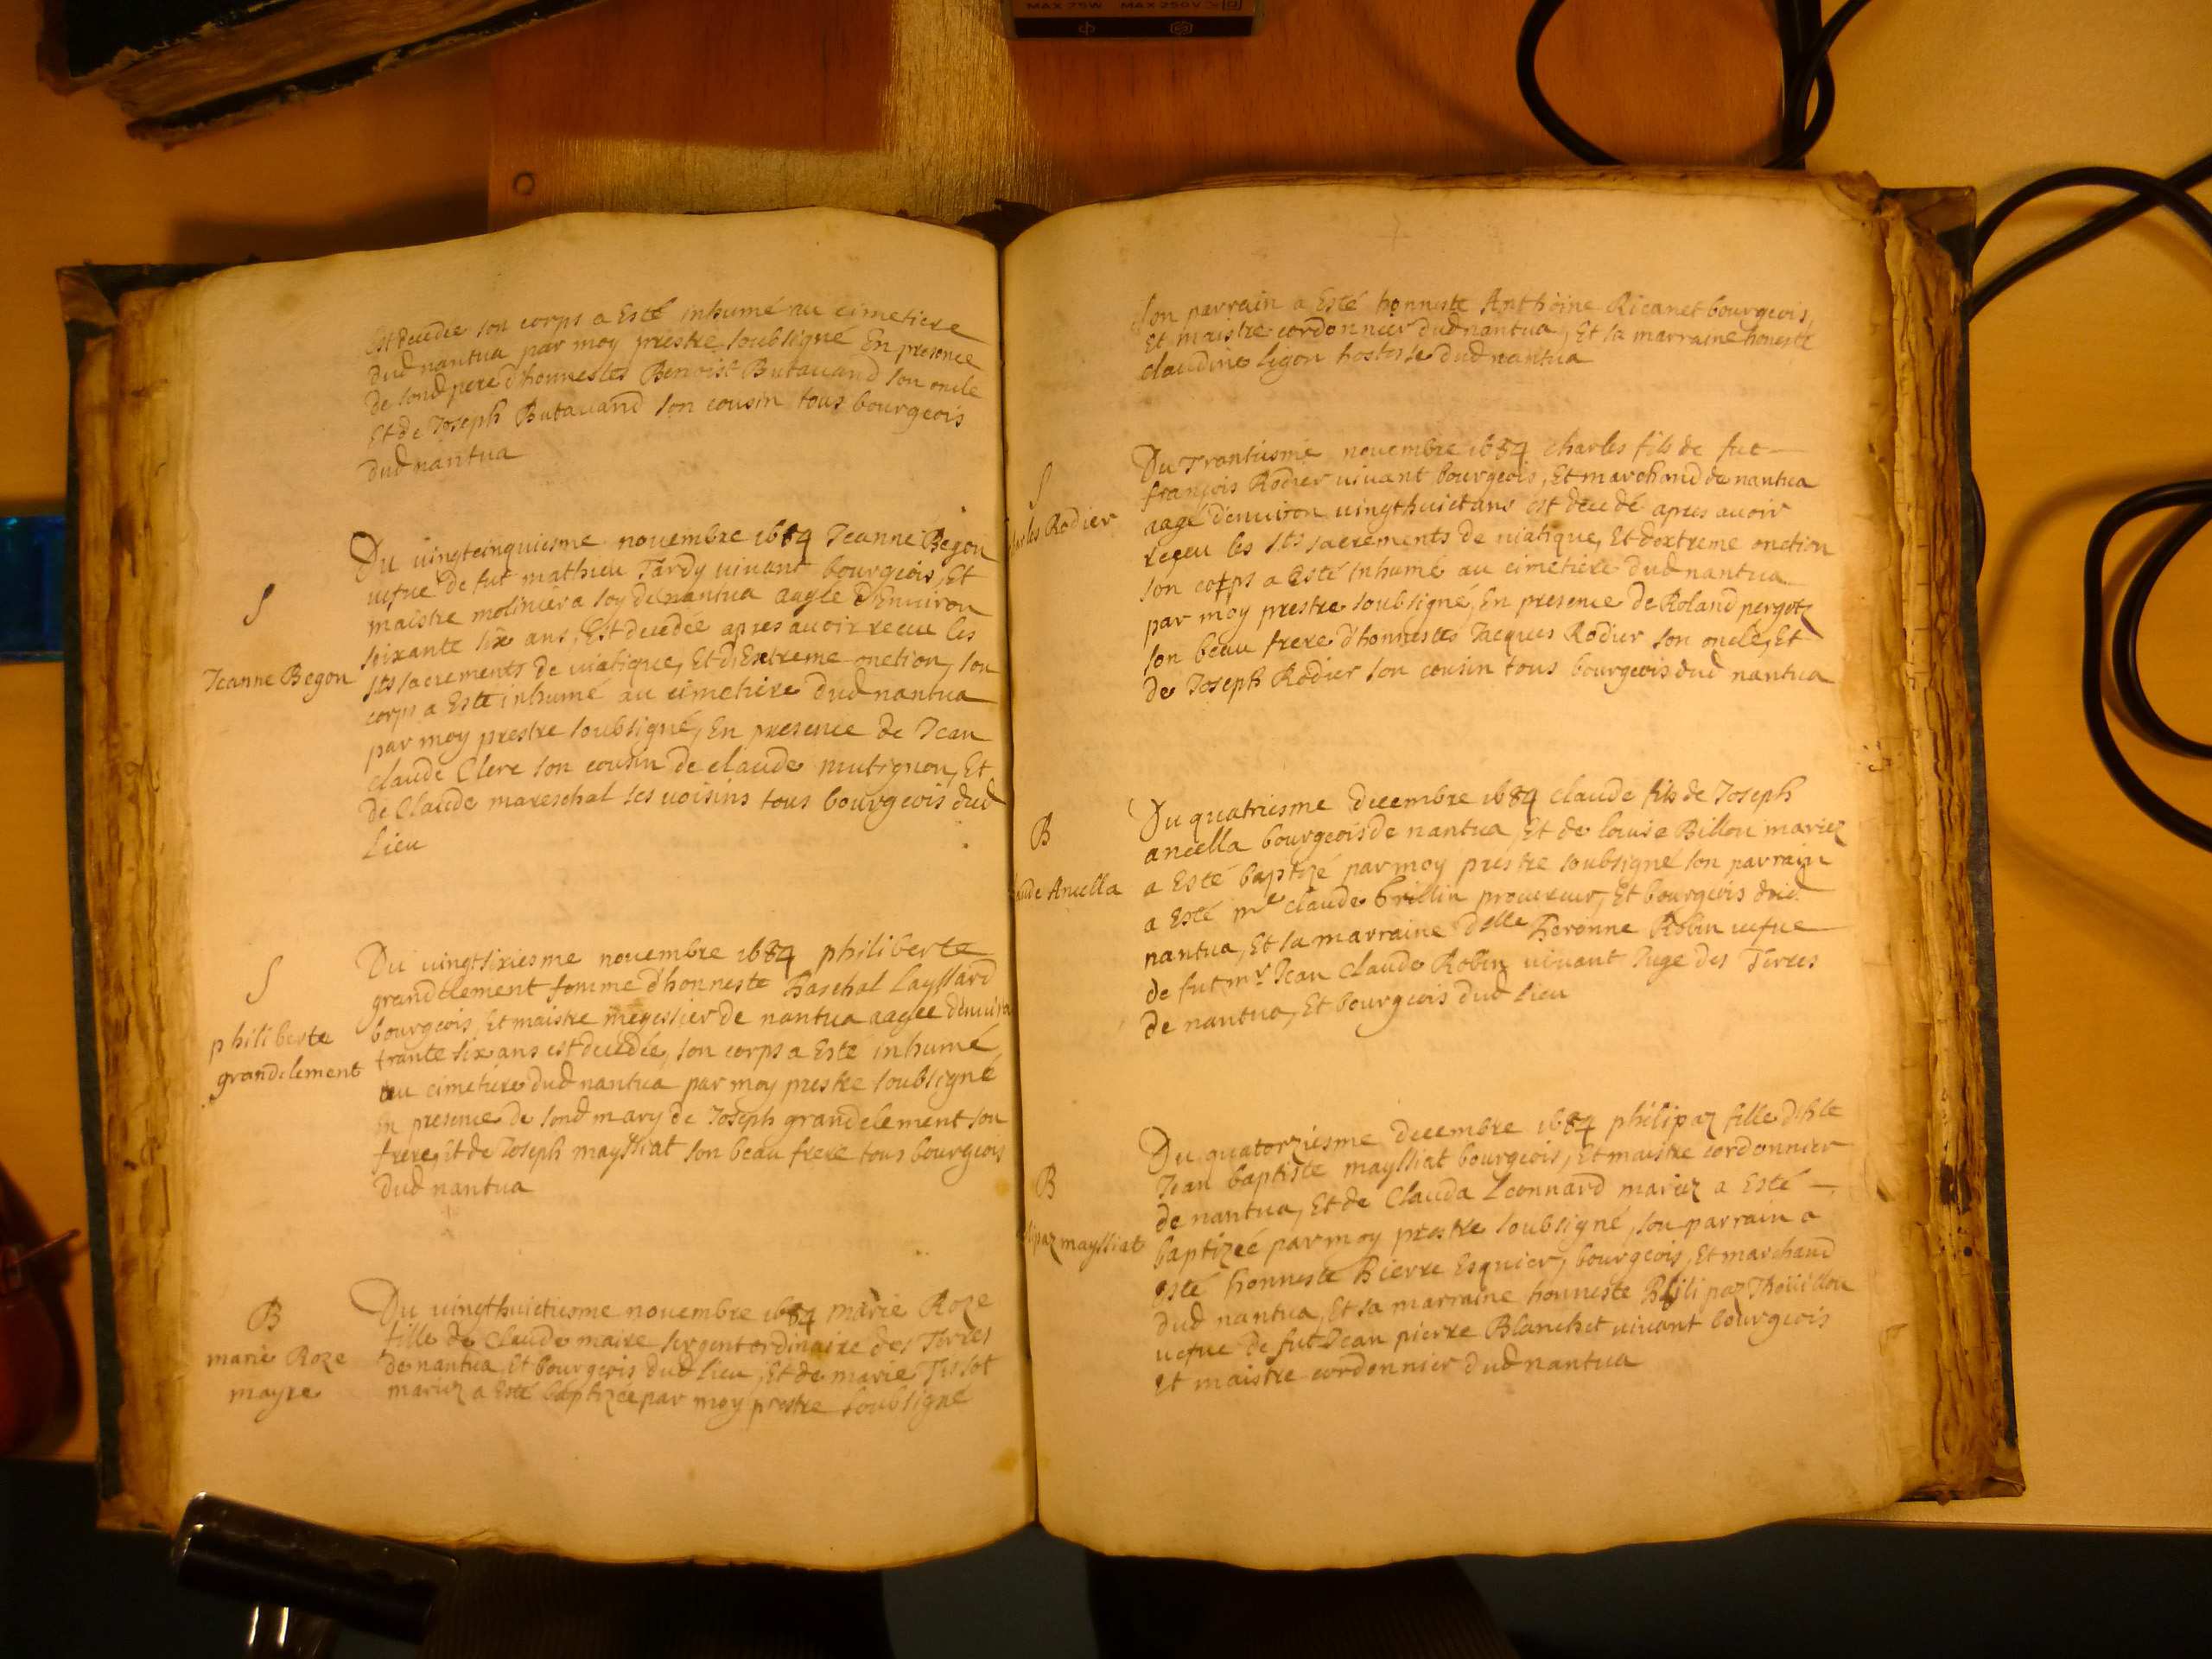 MAX 75W MAX 250V
est decedée son corps a Esté inhumé au cimetiere
dud nantua par moy prestre soubsigné En presence
de sond pere d'honnestes Benoist Butavand son oncle
Et de Joseph Butavand son cousin tous bourgeois
dud nantua
S
Jeanne Begon
Du vingtcinquiesme novembre 1684 Jeanne Begon
vefve de fut mathieu Tardy vivant bourgeois, Et
maistre molinier a soy de nantua aagée d'Environ
soixante six ans, Est decedée apres avoir receu les
sts sacrements de viatique, Et d'Extreme onction, son
corps a Esté inhumé au cimetiere dud nantua
par moy prestre soubsigné, En presence de Jean
claude Clerc son cousin de claude mutignon, Et
de Claude mareschal ses voisins tous bourgeois dud
Lieu
S
philiberte
grandclement
Du vingtsixiesme novembre 1684 philiberte
grandclement femme d'honneste Paschal Layssard
bourgeois, Et maistre megessier de nantua aagée d'environ
trante six ans est decedée, son corps a Esté inhumé
au cimetiere dud nantua par moy prestre soubsigné
En presence de sond mary de Joseph grandclement son
frere, Et de Joseph mayssiat son beau frere tous bourgeois
dud nantua
B
marie Roze
mayre
Du vingthuictiesme novembre 1684 marie Roze
fille de Claude maire sergent ordinaire des Terres
de nantua Et bourgeois dud Lieu, Et de marie Tissot
mariez a Esté baptizée par moy prestre soubsigné
son parrain a Esté honneste Anthoine Ricanet bourgeois,
Et maistre cordonnier dud nantua, Et sa marraine honeste
claudine Ligon hostesse dud nantua
S
les Rodier
Du Trantiesme novembre 1684 charles fils de fut
françois Rodier vivant bourgeois, Et marchand de nantua
aagé d'environ vingthuict ans est decedé apres avoir
receu les sts sacrements de viatique, Et d'extreme onction
son corps a Esté inhumé au cimetiere dud nantua
par moy prestre soubsigné, En presence de Roland pergotz
son beau frere d'honnestes Jacques Rodier son oncle, Et
de Joseph Rodier son cousin tous bourgeois dud nantua
B
aude Ancella
Du quatriesme decembre 1684 claude fils de Joseph
ancella bourgeois de nantua, Et de louise Billon mariez
a Esté baptizé par moy prestre soubsigné son parrain
a Esté me claude brillin procureur, Et bourgeois dud
nantua, Et sa marraine delle Peronne Robin vefve
de fut mr Jean Claude Robin vivant Juge des Terres
de nantua, Et bourgeois dud Lieu
B
lipaz mayssiat
Du quatorziesme decembre 1684 philipaz fille d'hte
Jean baptiste mayssiat bourgeois, Et maistre cordonnier
de nantua, Et de Clauda Leonnard mariez a Esté
baptizée par moy prestre soubsigné, son parrain a
Esté honneste Pierre Esquier, bourgeois, Et marchand
dud nantua, Et sa marraine honneste Philipaz Thoüillon
vefve de fut Jean pierre Blanchet vivant bourgeois
Et maistre cordonnier dud nantua